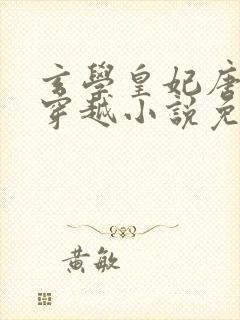 玄學皇妃唐
穿越小說免
黃敏